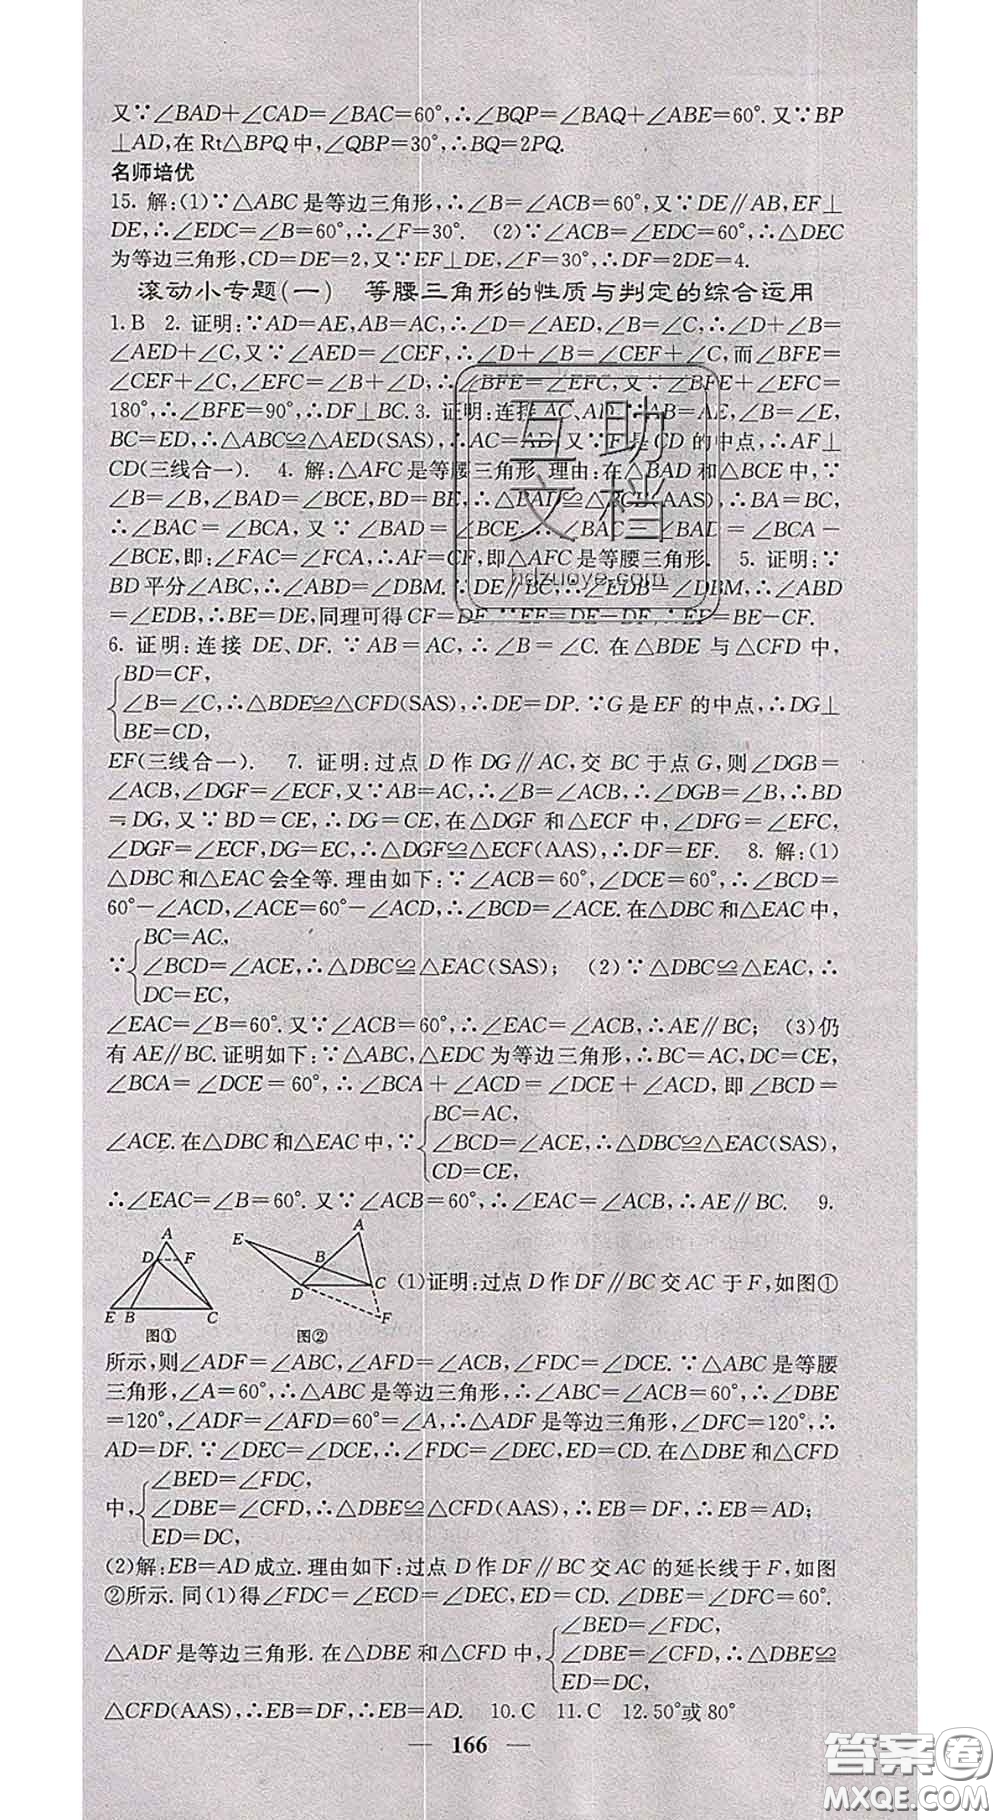 又∵∠BAD+∠CAD=∠BAC=60°,∴∠BQP=∠BAQ+∠ABE=60°.又∵BP
⊥AD,在Rt△BPQ中,∠QBP=30°,∴BQ=2PQ.
名师培优
15. 解:(1)∵△ABC是等边三角形,∴∠B=∠ACB=60°,又∵DE∥AB,EF⊥
DE,∴∠EDC=∠B=60°,∴∠F=30°. (2)∵∠ACB=∠EDC=60°,∴△DEC
为等边三角形,CD=DE=2,又∵EF⊥DE,∠F=30°,∴DF=2DE=4.
滚动小专题(一) 等腰三角形的性质与判定的综合运用
1.B 2. 证明:∵AD=AE,AB=AC,∴∠D=∠AED,∠B=∠C,∴∠D+∠B=
∠AED+∠C,又∵∠AED=∠CEF,∴∠D+∠B=∠CEF+∠C,而∠BFE=
∠CEF+∠C,∠EFC=∠B+∠D,∴∠BFE=∠EFC,又∵∠BFE+∠EFC=
180°,∴∠BFE=90°,∴DF⊥BC. 3. 证明:连接AC、AD.∵AB=AE,∠B=∠E,
BC=ED,∴△ABC≌△AED(SAS),∴AC=AD.又∵F是CD的中点,∴AF⊥
CD(三线合一). 4. 解:△AFC是等腰三角形.理由:在△BAD和△BCE中,∵
∠B=∠B,∠BAD=∠BCE,BD=BE,∴△BAD≌△BCE(AAS),∴BA=BC,
∴∠BAC=∠BCA,又∵∠BAD=∠BCE,∴∠BAC-∠BAD=∠BCA-
∠BCE,即:∠FAC=∠FCA,∴AF=CF,即△AFC是等腰三角形. 5. 证明:∵
BD平分∠ABC,∴∠ABD=∠DBM.∵DE∥BC,∴∠EDB=∠DBM,∴∠ABD
=∠EDB,∴BE=DE,同理可得CF=DF.∵EF=DE-DF,∴EF=BE-CF.
6. 证明:连接DE、DF.∵AB=AC,∴∠B=∠C.在△BDE与△CFD中,
BD=CF,
∠B=∠C,∴△BDE≌△CFD(SAS),∴DE=DP.∵G是EF的中点,∴DG⊥
BE=CD,
EF(三线合一). 7. 证明:过点D作DG∥AC,交BC于点G,则∠DGB=
∠ACB,∠DGF=∠ECF,又∵AB=AC,∴∠B=∠ACB,∴∠DGB=∠B,∴BD
=DG,又∵BD=CE,∴DG=CE,在△DGF和△ECF中,∠DFG=∠EFC,
∠DGF=∠ECF,DG=EC,∴△DGF≌△ECF(AAS),∴DF=EF. 8. 解:(1)
△DBC和△EAC会全等.理由如下:∵∠ACB=60°,∠DCE=60°,∴∠BCD=
60°-∠ACD,∠ACE=60°-∠ACD,∴∠BCD=∠ACE.在△DBC和△EAC中,
BC=AC,
∵∠BCD=∠ACE,∴△DBC≌△EAC(SAS); (2)∵△DBC≌△EAC,∴
DC=EC,
∠EAC=∠B=60°.又∵∠ACB=60°,∴∠EAC=∠ACB,∴AE∥BC; (3)仍
有AE∥BC.证明如下:∵△ABC,△EDC为等边三角形,∴BC=AC,DC=CE,
∠BCA=∠DCE=60°,∴∠BCA+∠ACD=∠DCE+∠ACD,即∠BCD=
BC=AC,
∠ACE.在△DBC和△EAC中,∵∠BCD=∠ACE,∴△DBC≌△EAC(SAS),
CD=CE,
∴∠EAC=∠B=60°.又∵∠ACB=60°,∴∠EAC=∠ACB,∴AE∥BC. 9.
A
D F
E B C
图①
A
E
B
D C
F
图②
(1)证明:过点D作DF∥BC交AC于F,如图①
所示,则∠ADF=∠ABC,∠AFD=∠ACB,∠FDC=∠DCE.∵△ABC是等腰
三角形,∠A=60°,∴△ABC是等边三角形,∴∠ABC=∠ACB=60°,∴∠DBE
=120°,∠ADF=∠AFD=60°=∠A,∴△ADF是等边三角形,∠DFC=120°,∴
AD=DF.∵∠DEC=∠DCE,∴∠FDC=∠DEC,ED=CD.在△DBE和△CFD
∠BED=∠FDC,
中,∠DBE=∠CFD,∴△DBE≌△CFD(AAS),∴EB=DF,∴EB=AD;
ED=DC,
(2)解:EB=AD成立.理由如下:过点D作DF∥BC交AC的延长线于F,如图
②所示.同(1)得∠FDC=∠ECD=∠DEC,ED=CD.∠DBE=∠DFC=60°.
∠BED=∠FDC,
△ADF是等边三角形.在△DBE和△CFD中,∠DBE=∠CFD,∴△DBE≌
ED=DC,
△CFD(AAS),∴EB=DF,∴EB=AD. 10.C 11.C 12.50°或80°
166
互助文档
hdzuoye.com
答案圈
MXQE.COM